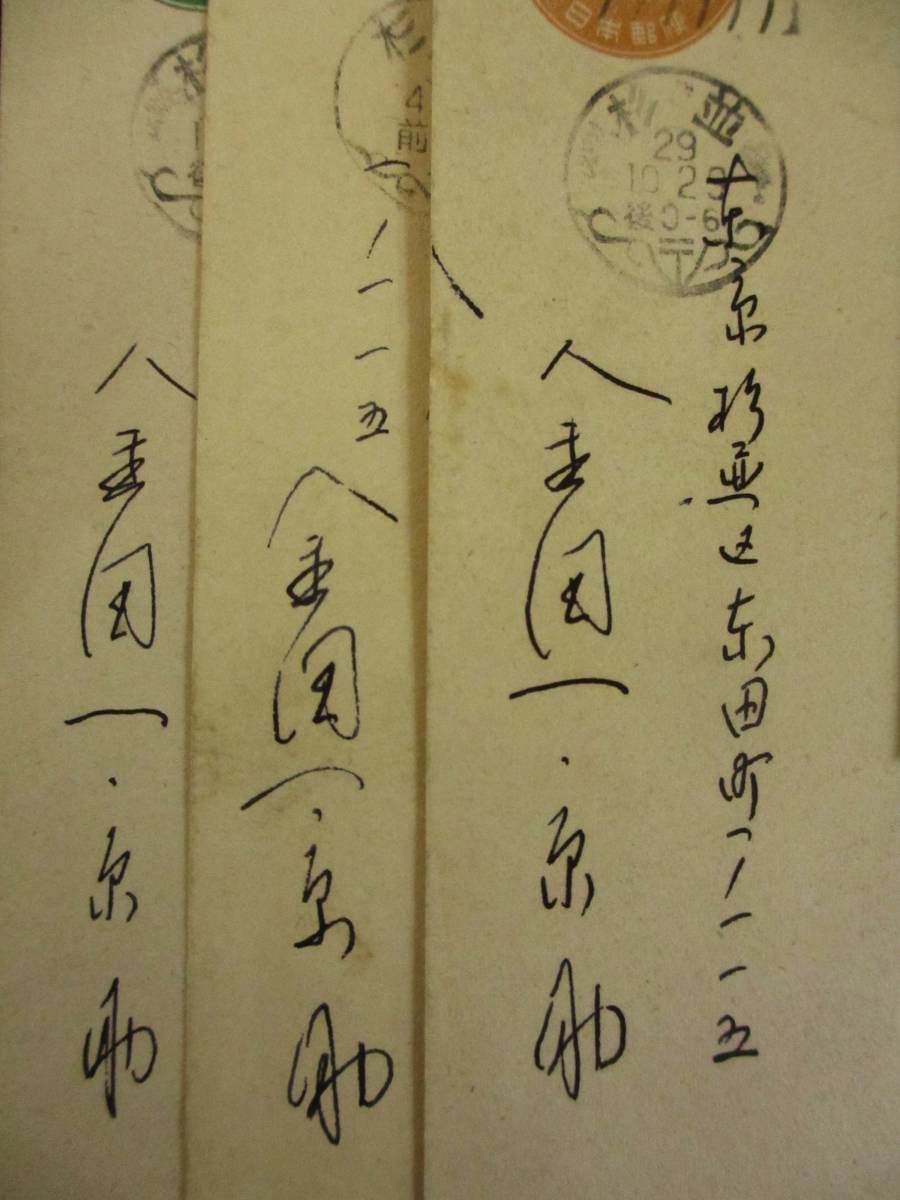 日本郵便
杉並
29
10 2
後0-6
東京杉並区東田町一ノ一一五
金田一京助
杉
4
前
一ノ一一五
金田一京助
杉
金田一京助